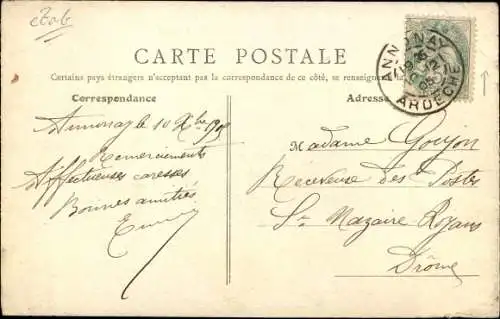 CARTE POSTALE
Certains pays étrangers n'acceptant pas la correspondance de ce côté, se renseigner
Correspondance
Adresse
ANNONAY
ARDECHE
Annonay le 10 Xbre 1905
Remerciements
Affectueuses caresses
Bonnes amitiés
Madame Goujon
Receveuse des Postes
St Nazaire Royans
Drôme